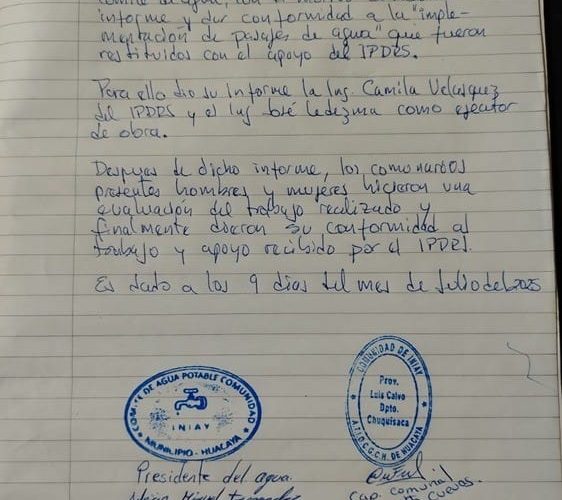 informe y dar conformidad a la "imple-
mentación de pasajes de agua" que fueron
restituidos con el apoyo del IPDRS.
Para ello dio su informe la Ing. Camila Velasquez
del IPDRS y el Ing José Ledezma como ejecutor
de obra.
Despues de dicho informe, los comunarios
presentes hombres y mujeres hicieron una
evaluación del trabajo realizado y
finalmente dieron su conformidad al
trabajo y apoyo recibido por el IPDRS.
Es dado a los 9 dias del mes de Julio del 2025
COMITÉ DE AGUA POTABLE COMUNIDAD
INIAY
MUNICIPIO - HUACAYA
COMUNIDAD DE INIAY
Prov.
Luis Calvo
Dpto.
Chuquisaca
A.T.I.O.C.G.C.H. DE HUACAYA
Presidente del agua.
Cap. comunal
Cuevas.